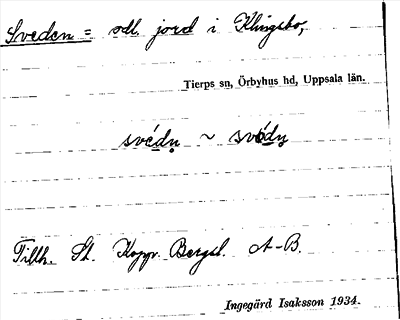 Sveden = odl. jord i Klingsbo,
Tierps sn, Örbyhus hd, Uppsala län.
svédṇ ~ svǿdṇ
Tillh. St. Koppr. Bergsl. A-B.
Ingegärd Isaksson 1934.